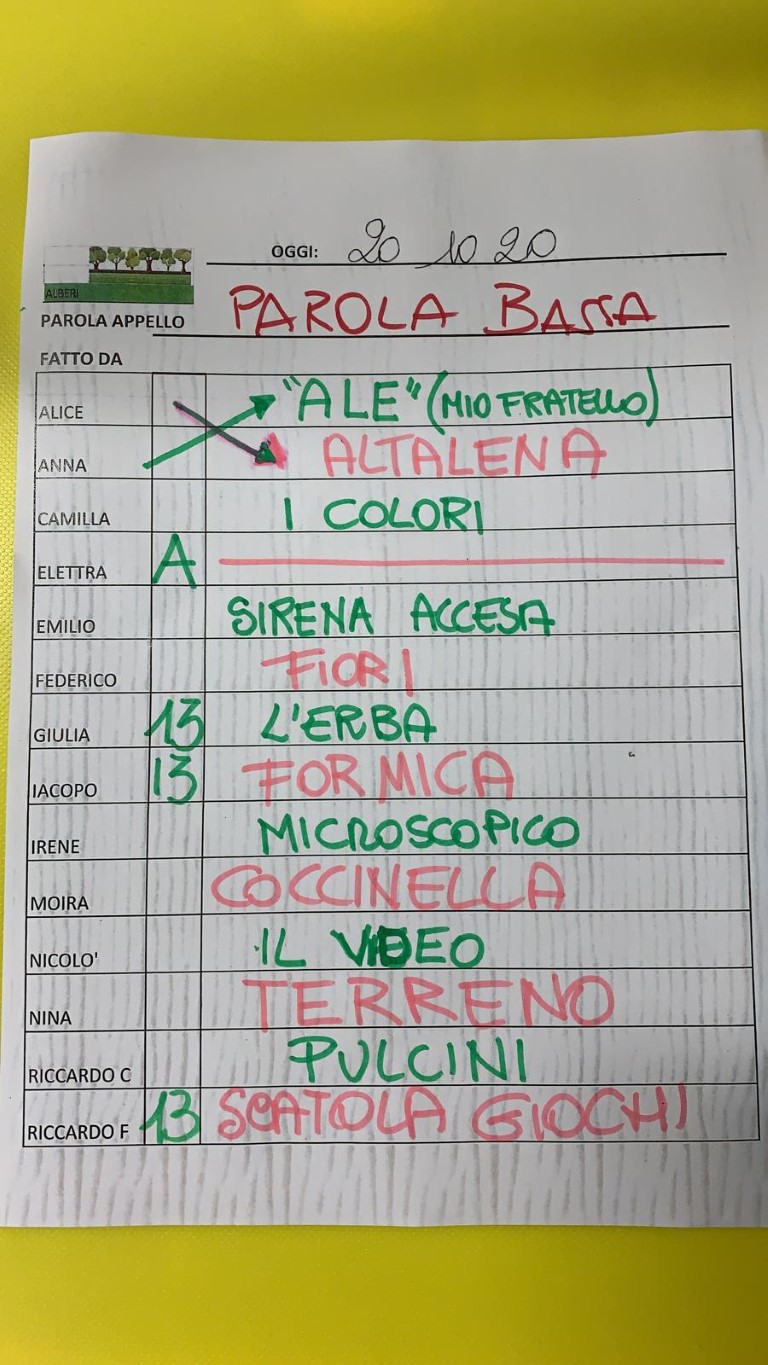 OGGI: 20 10 20
ALBERI
PAROLA APPELLO PAROLA BASSA
FATTO DA
ALICE "ALE" (MIO FRATELLO)
ANNA ALTALENA
CAMILLA I COLORI
ELETTRA A
EMILIO SIRENA ACCESA
FEDERICO FIORI
GIULIA 13 L'ERBA
IACOPO 13 FORMICA
IRENE MICROSCOPICO
MOIRA COCCINELLA
NICOLO' IL VIDEO
NINA TERRENO
RICCARDO C PULCINI
RICCARDO F 13 SCATOLA GIOCHI